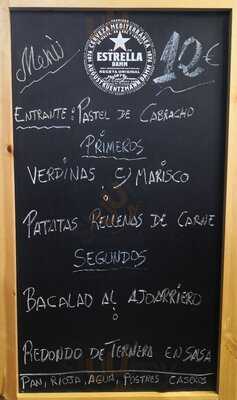 Menú
CERVEZA MEDITERRÁNEA
ESTRELLA
DAMM
RECETA ORIGINAL
AUGUST KUENTZMANN DAMM
12€
ENTRANTE: PASTEL DE CABRACHO
PRIMEROS
VERDINAS C/ MARISCO
ó
PATATAS RELLENAS DE CARNE
SEGUNDOS
BACALAO AL AJOARRIERO
ó
REDONDO DE TERNERA EN SALSA
PAN, RIOJA, AGUA, POSTRES CASEROS